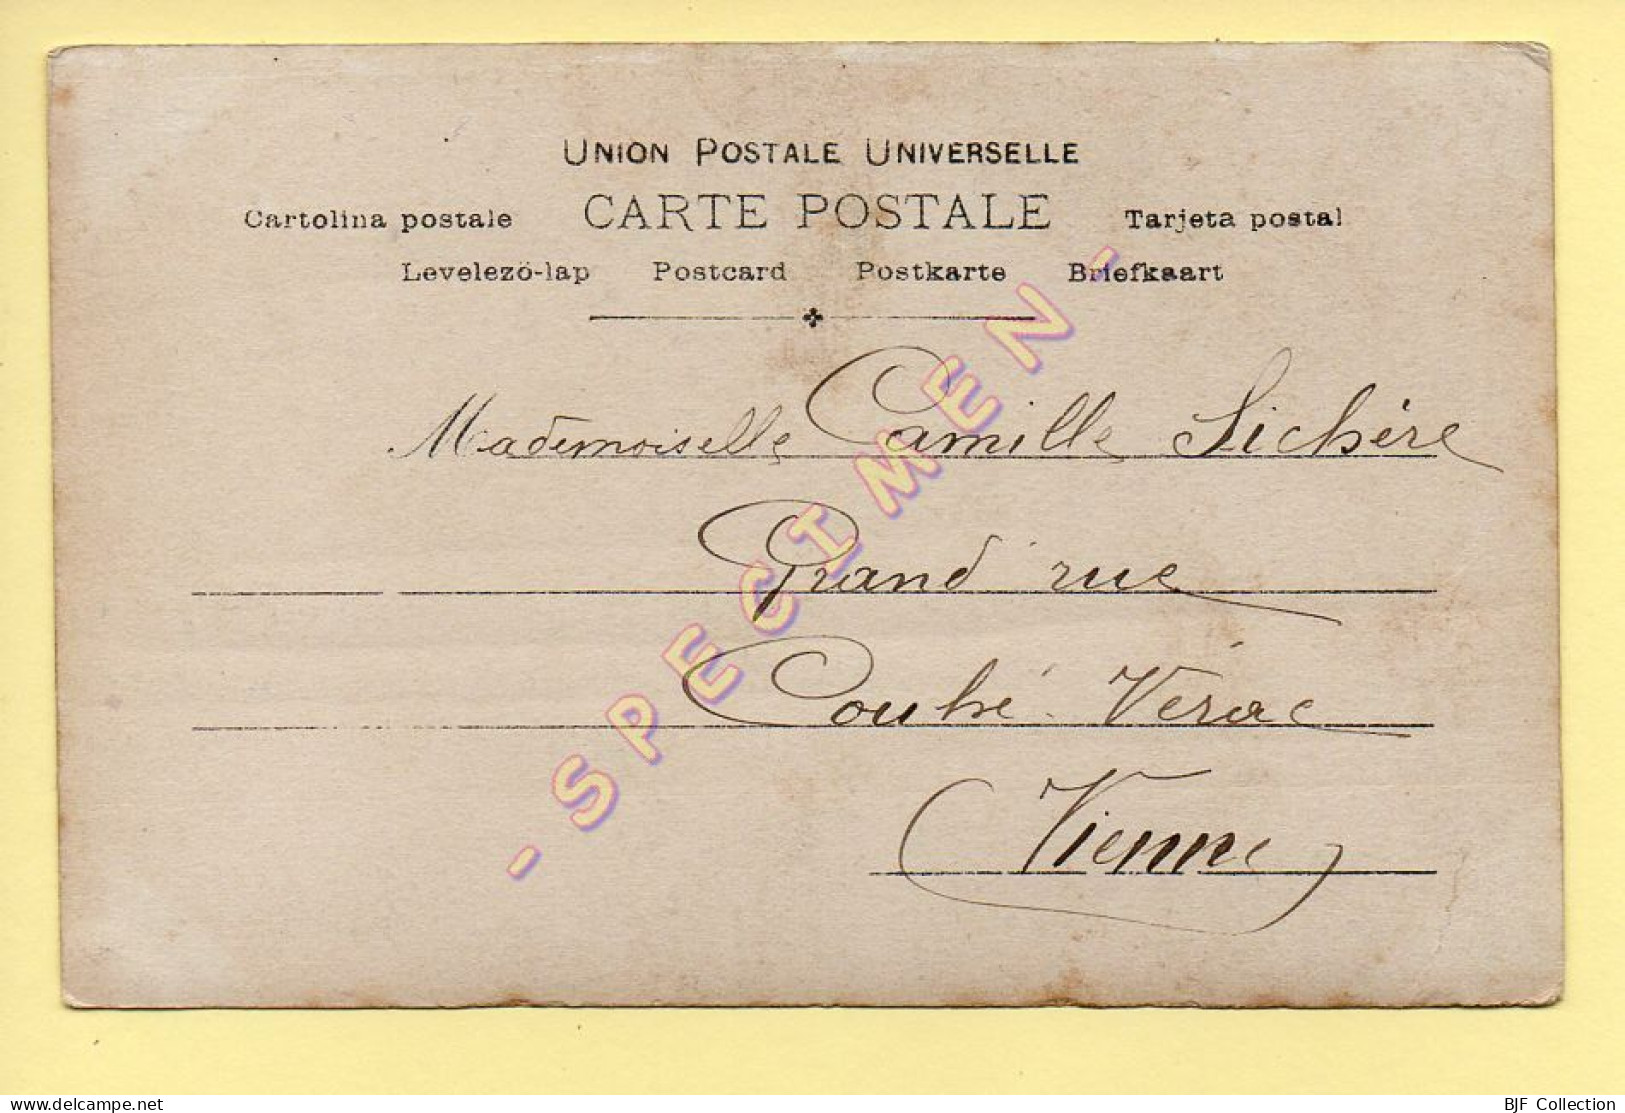 UNION POSTALE UNIVERSELLE
Cartolina postale CARTE POSTALE Tarjeta postal
Levelező-lap Postcard Postkarte Briefkaart
Mademoiselle Camille Sichère
Grand rue
Couhé-Vérac
Vienne
- SPECIMEN -
www.delcampe.net BJF Collection